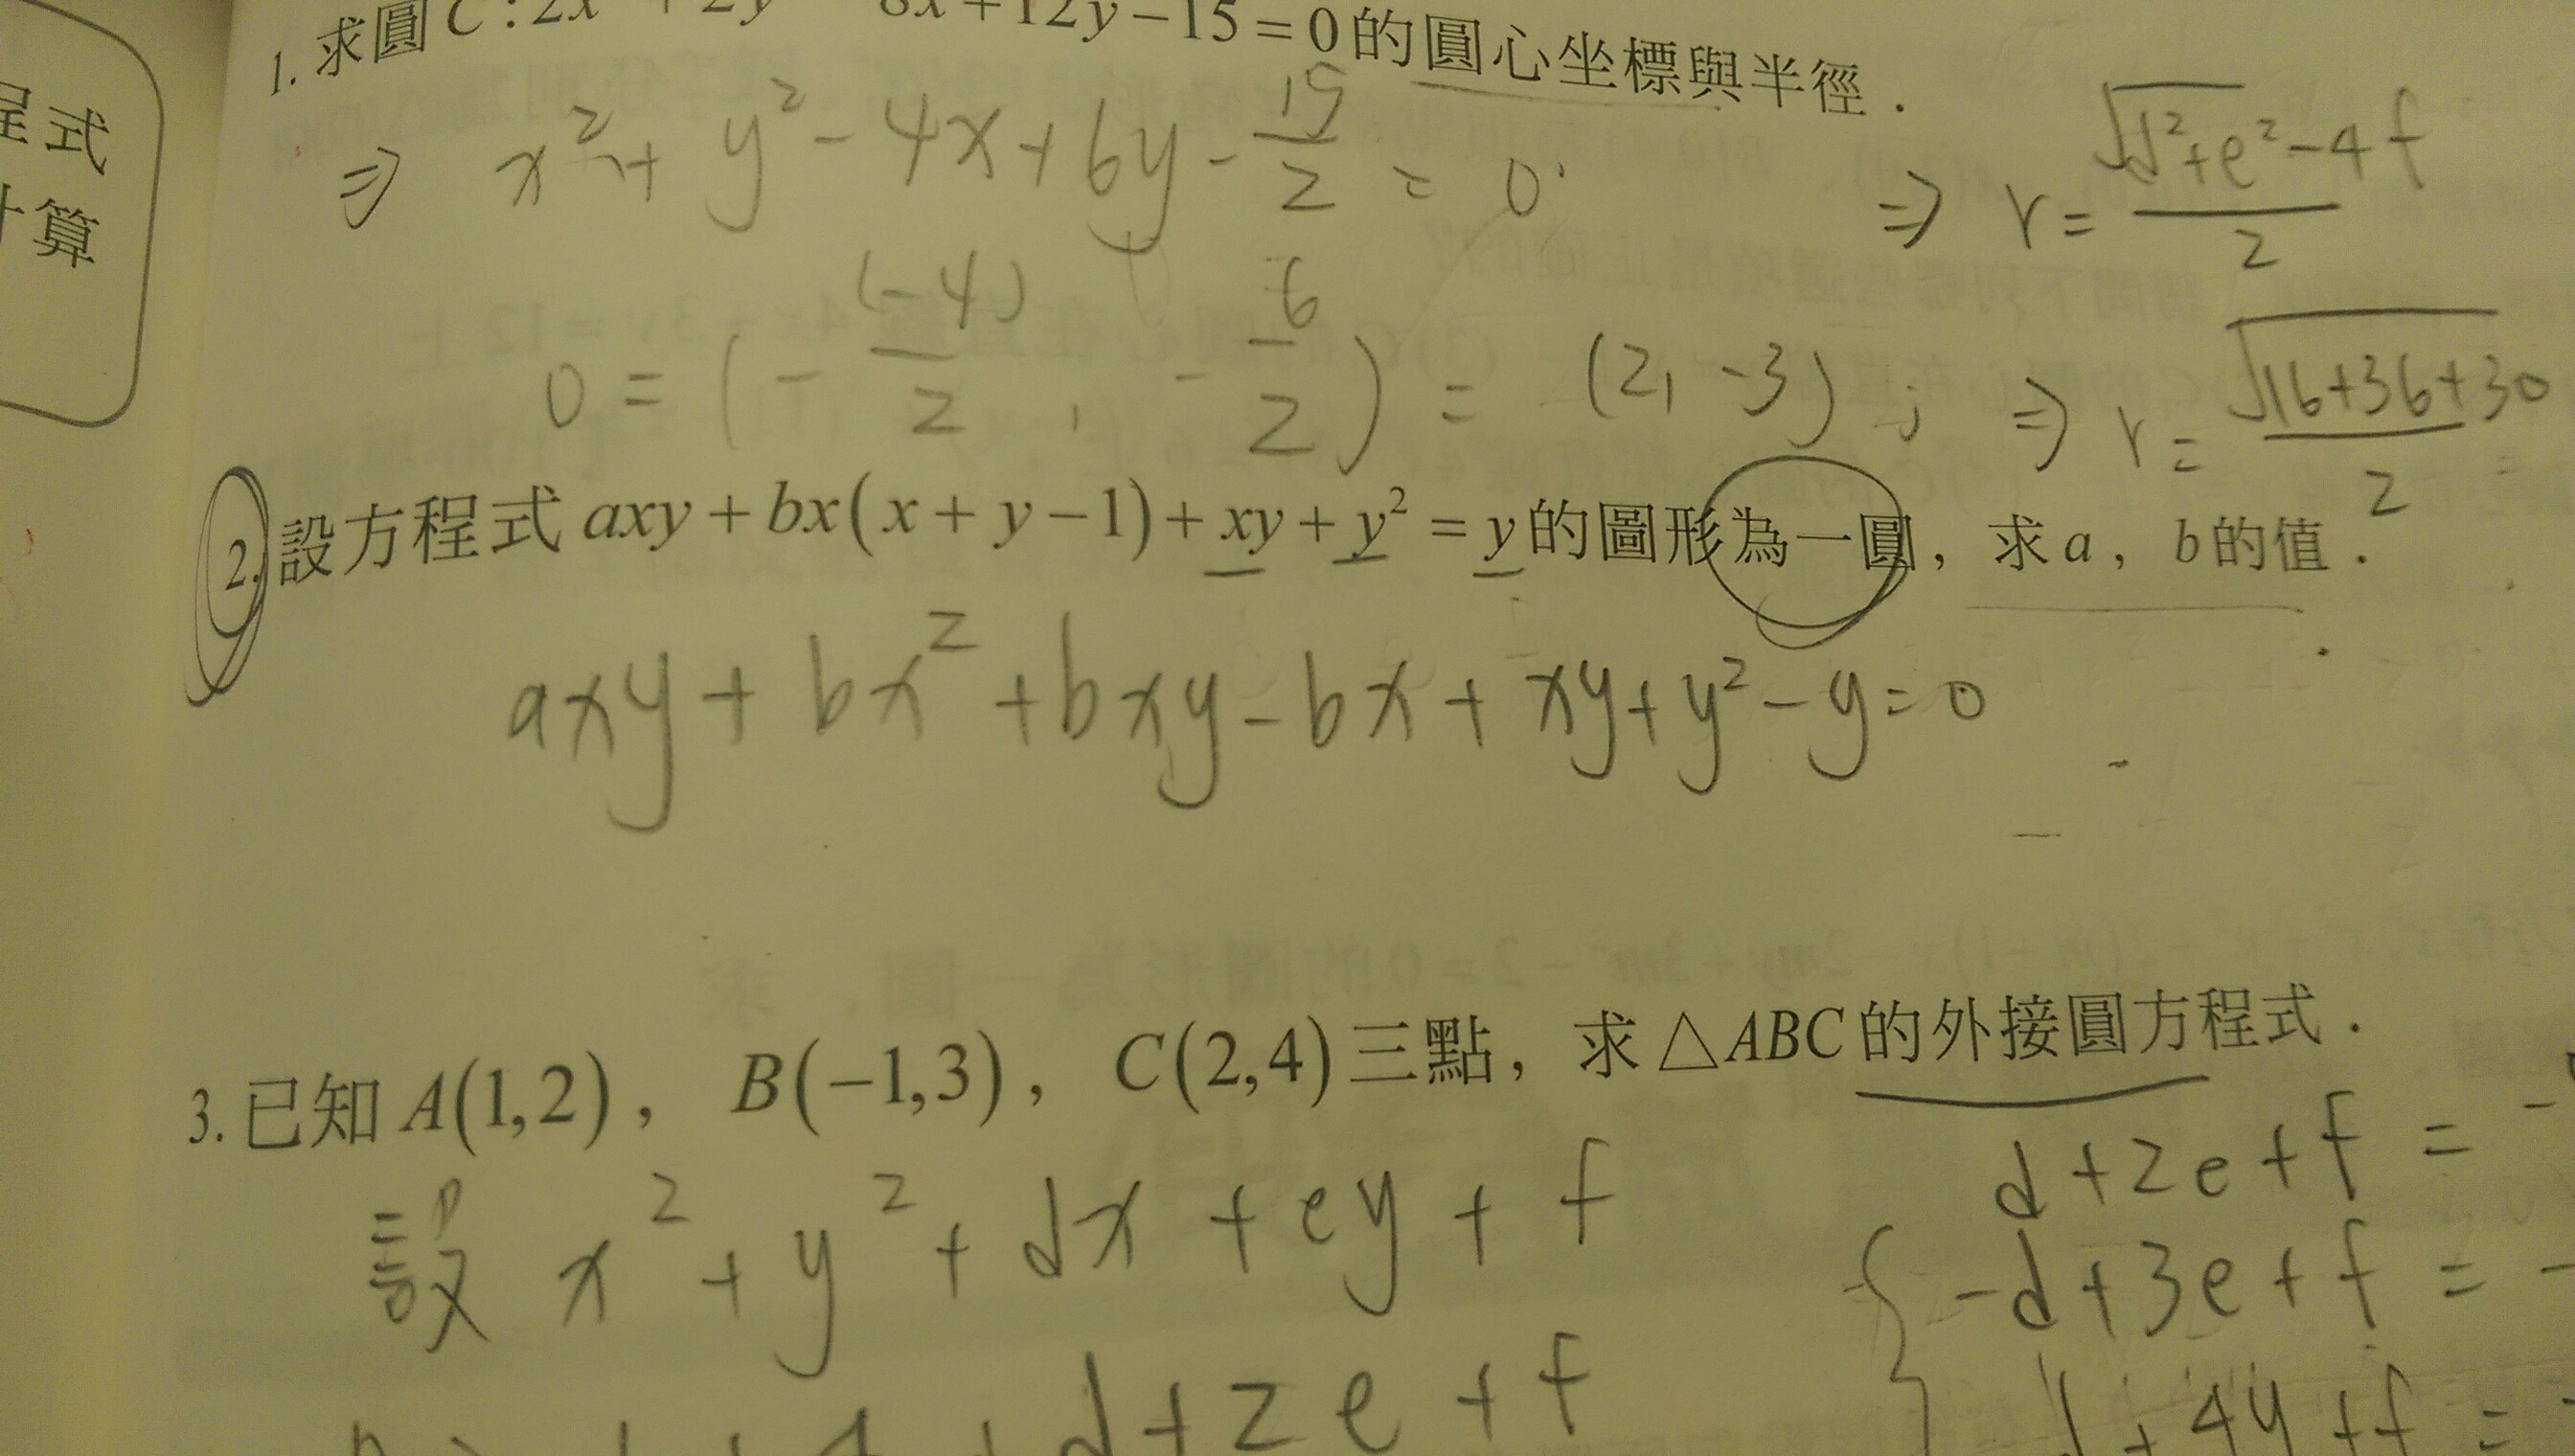 程式
計算
1. 求圓 C : 2x² + 2y² − 8x + 12y − 15 = 0 的圓心坐標與半徑．
⇒ x² + y² − 4x + 6y − 15/2 = 0
⇒ r = √(d²+e²−4f)/2
O = (−(−4)/2, −6/2) = (2, −3) ; ⇒ r = √(16+36+30)/2
2. 設方程式 axy + bx(x + y − 1) + xy + y² = y 的圖形為一圓，求 a，b 的值．
axy + bx² + bxy − bx + xy + y² − y = 0
3. 已知 A(1,2)， B(−1,3)， C(2,4) 三點，求 △ABC 的外接圓方程式．
設 x² + y² + dx + ey + f
d + 2e + f = −
−d + 3e + f = −
d + 2e + f
+ 4y + f =